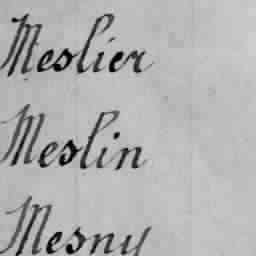 Meslier
Meslin
Mesny